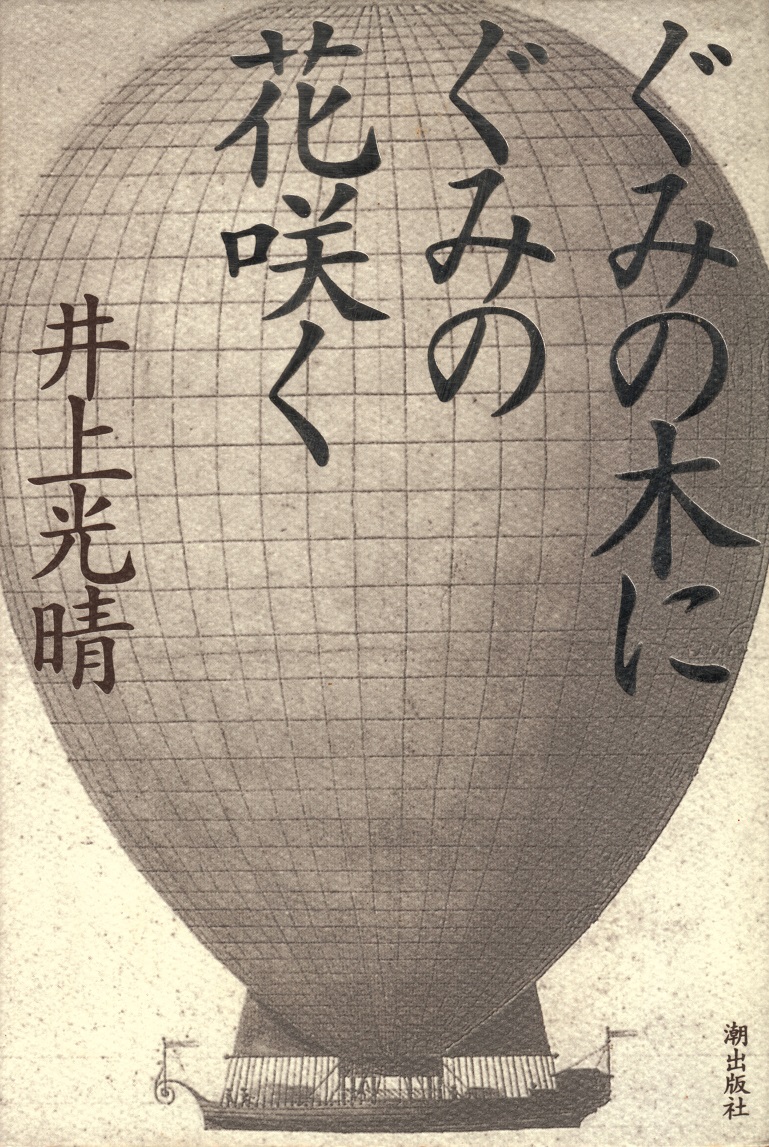 ぐみの木に
ぐみの
花咲く
井上光晴
潮出版社